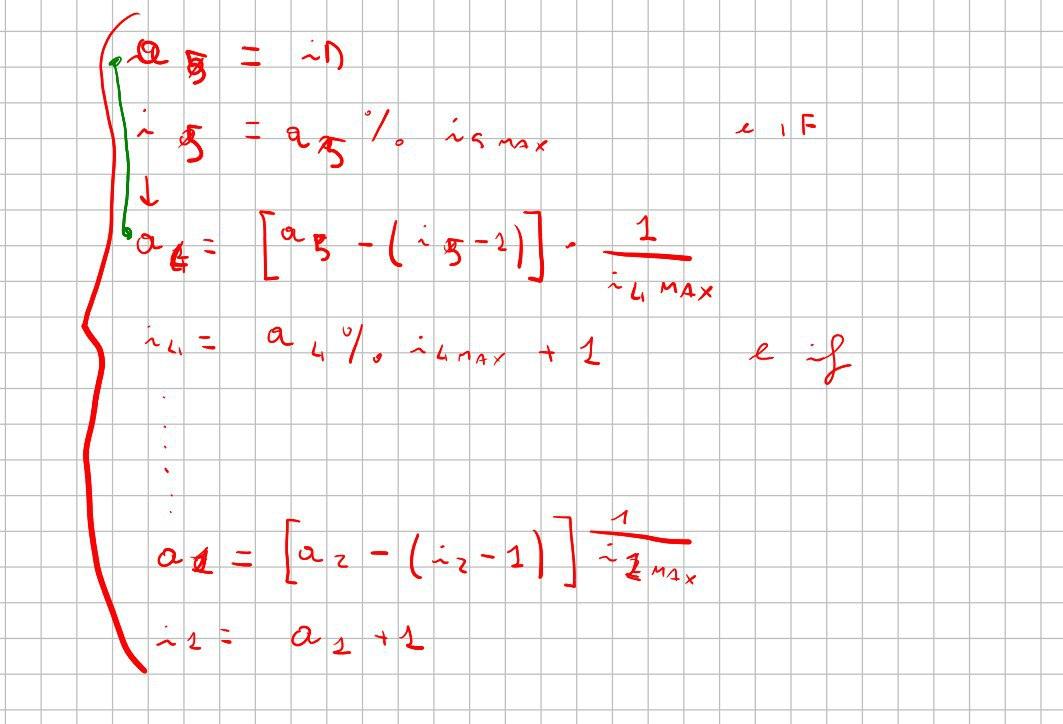 a5 = in
i5 = a5 % i5 MAX e IF
↓
a4 = [a5 - (i5-1)] · 1/i4 MAX
i4 = a4 % i4 MAX + 1 e if
a1 = [a2 - (i2-1)] 1/i1 MAX
i1 = a1 + 1